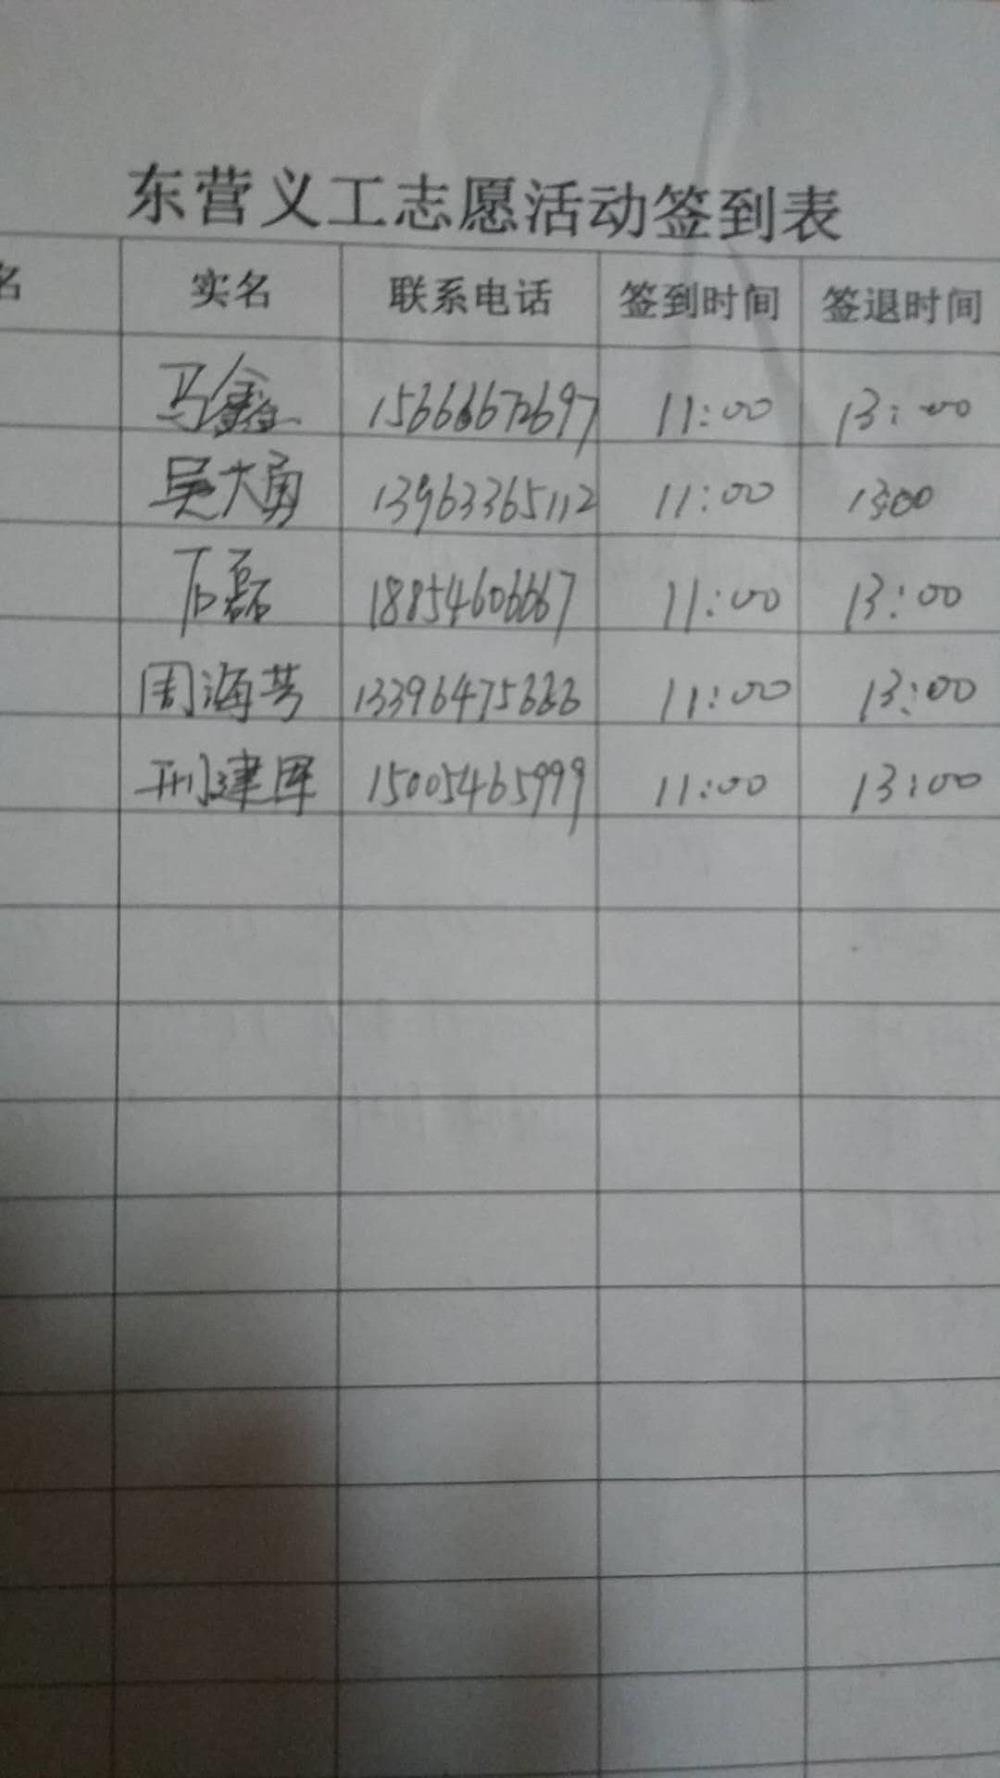 东营义工志愿活动签到表
名 实名 联系电话 签到时间 签退时间
马鑫 15666672697 11:00 13:00
吴大勇 13963365112 11:00 13:00
石磊 18854606667 11:00 13:00
周海芳 13396475666 11:00 13:00
刑建军 15005465999 11:00 13:00